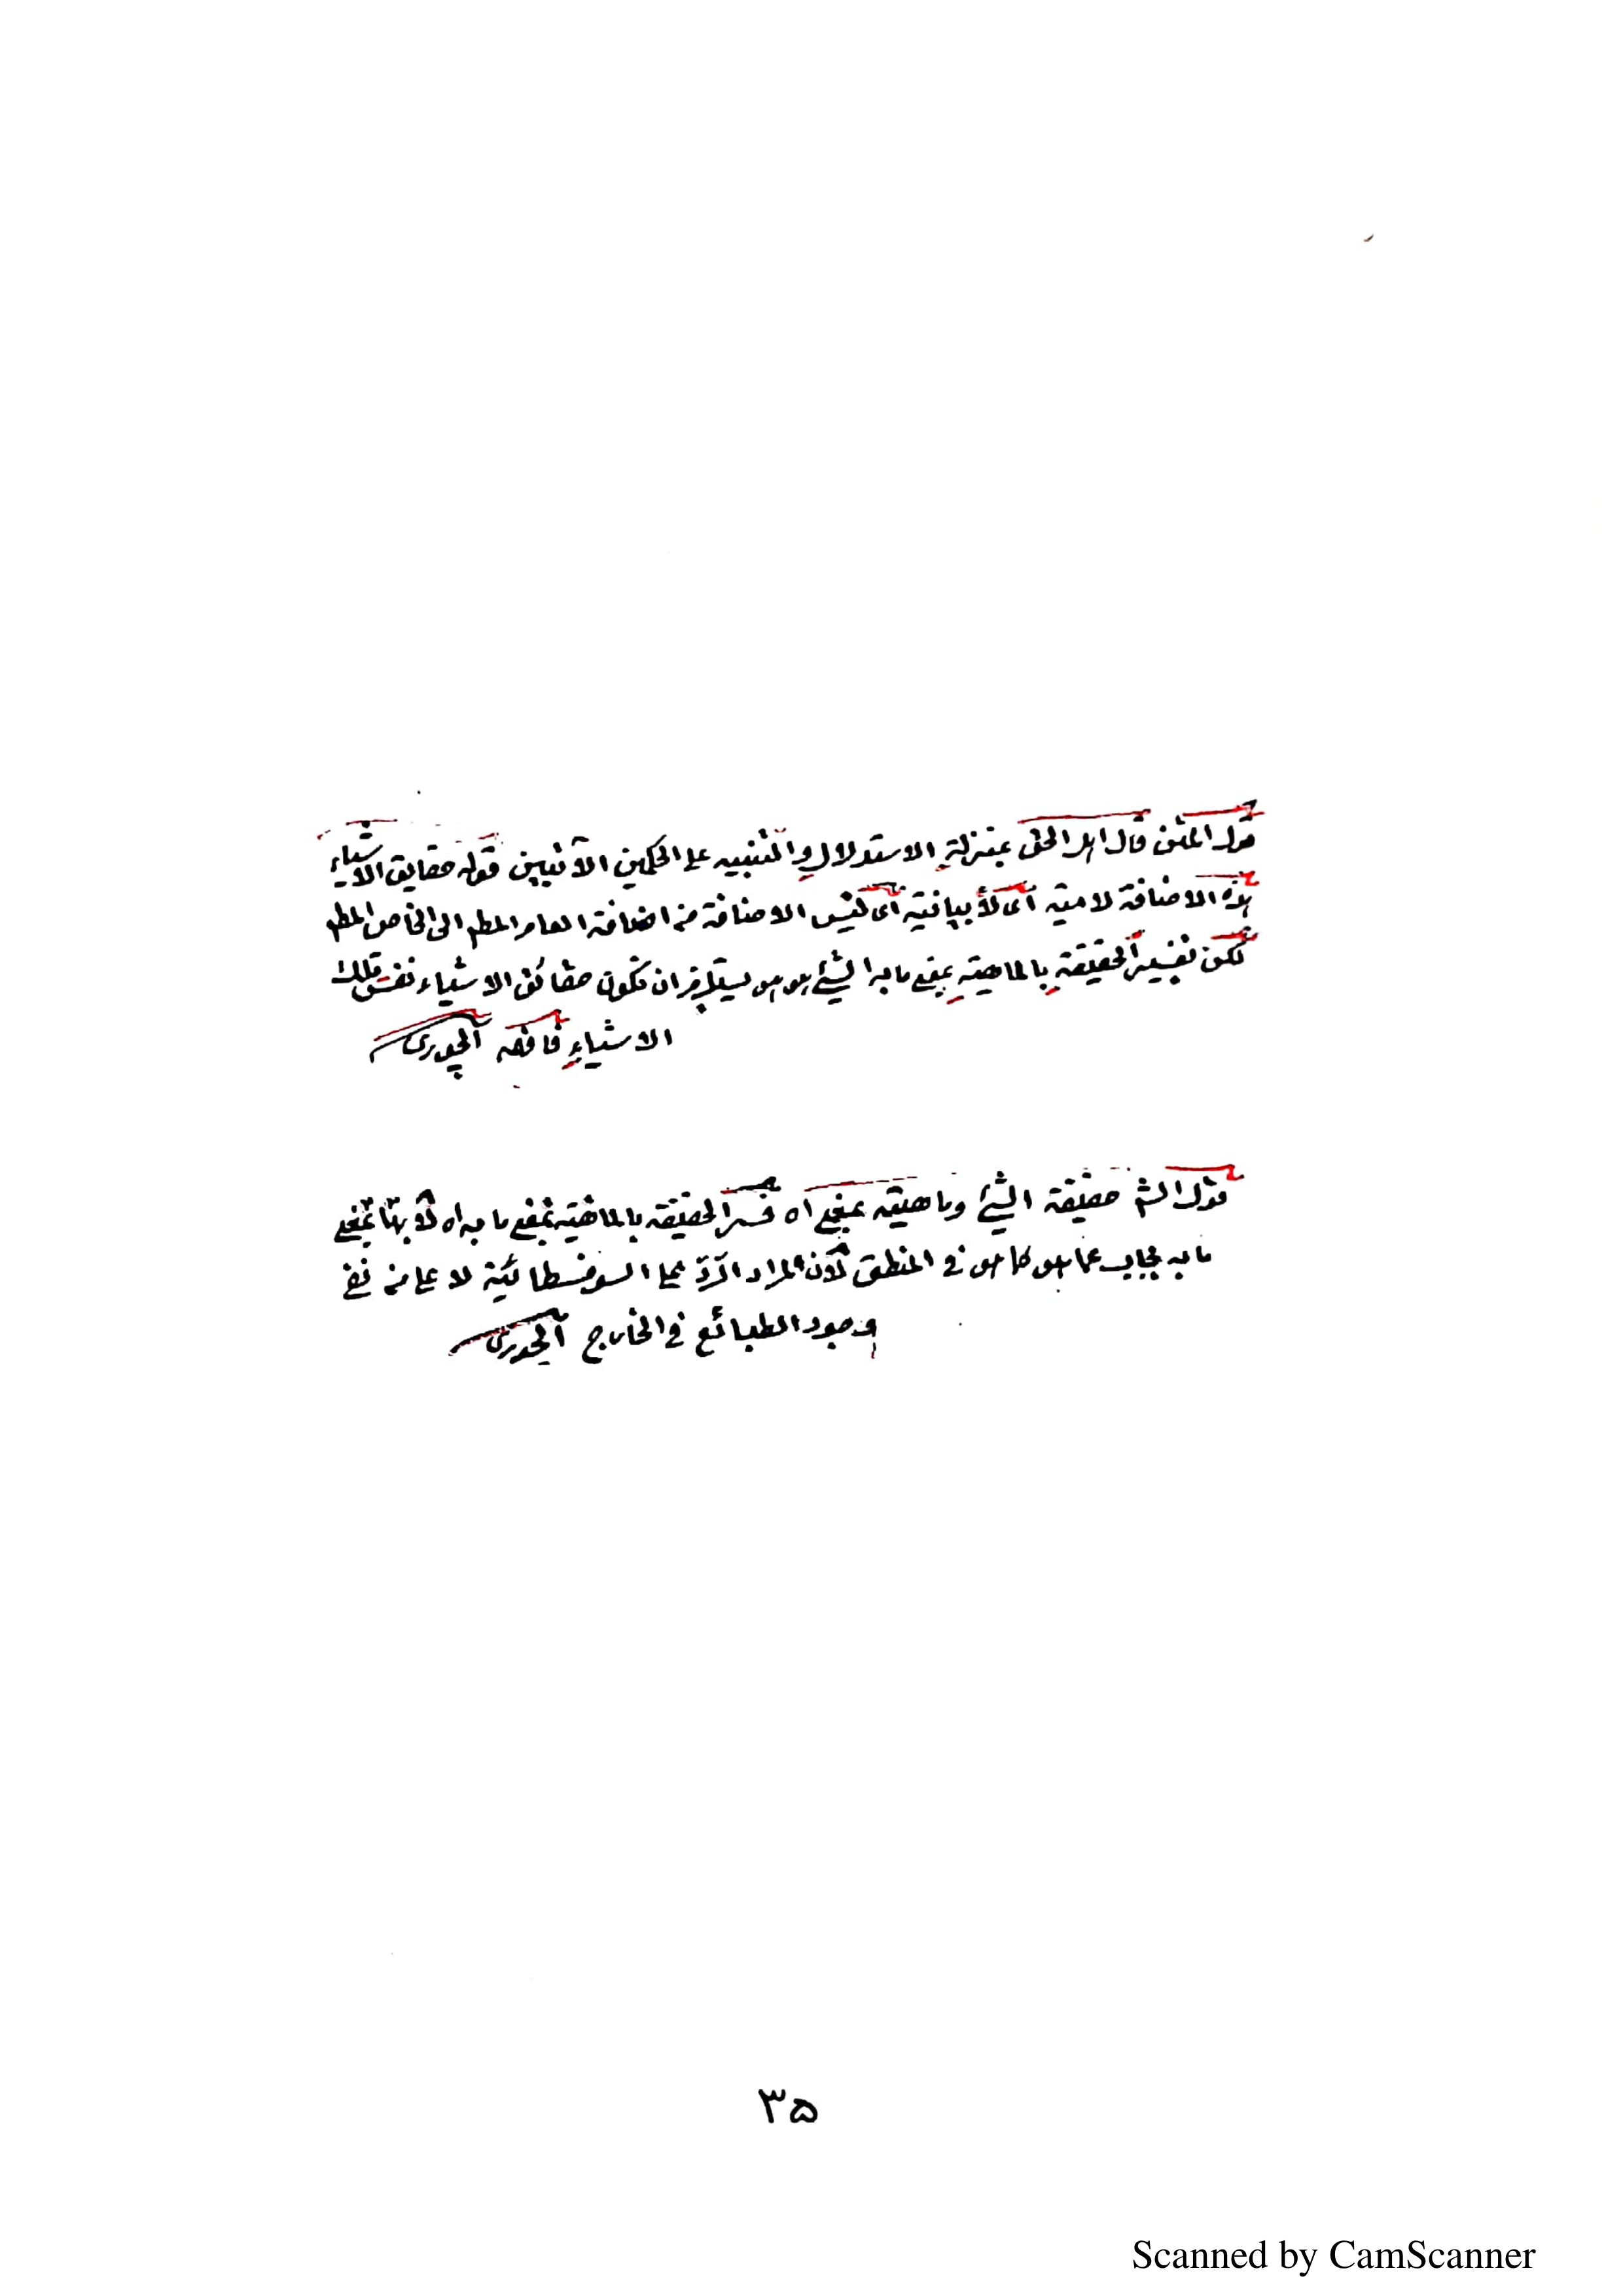 قول المتن قال اهل الحق بمنزلة الاستدلال والتنبيه على الحكمين الآتيين قوله حقايق الاشياء
هذه الاضافة لامية اى لا بيانية اى ليس الاضافة من اضافة العام المطلق الى الخاص المطلق
لكن تفسير الحقيقة بالماهية بمعنى ما به الشئ هو هو يستلزم ان تكون حقائق الاشياء نفس تلك
الاشياء فافهم الچورى
قول الشم حقيقة الشئ وماهيته بمعنى اه فسر الحقيقة بالماهية بمعنى ما به اه لا بها بمعنى
ما به يجاب عما هو كما هو فى المنطق لان المراد الرد على السوفسطائية لا على من نفى
وجود الطبائع فى الخارج الچورى
۳۵
Scanned by CamScanner